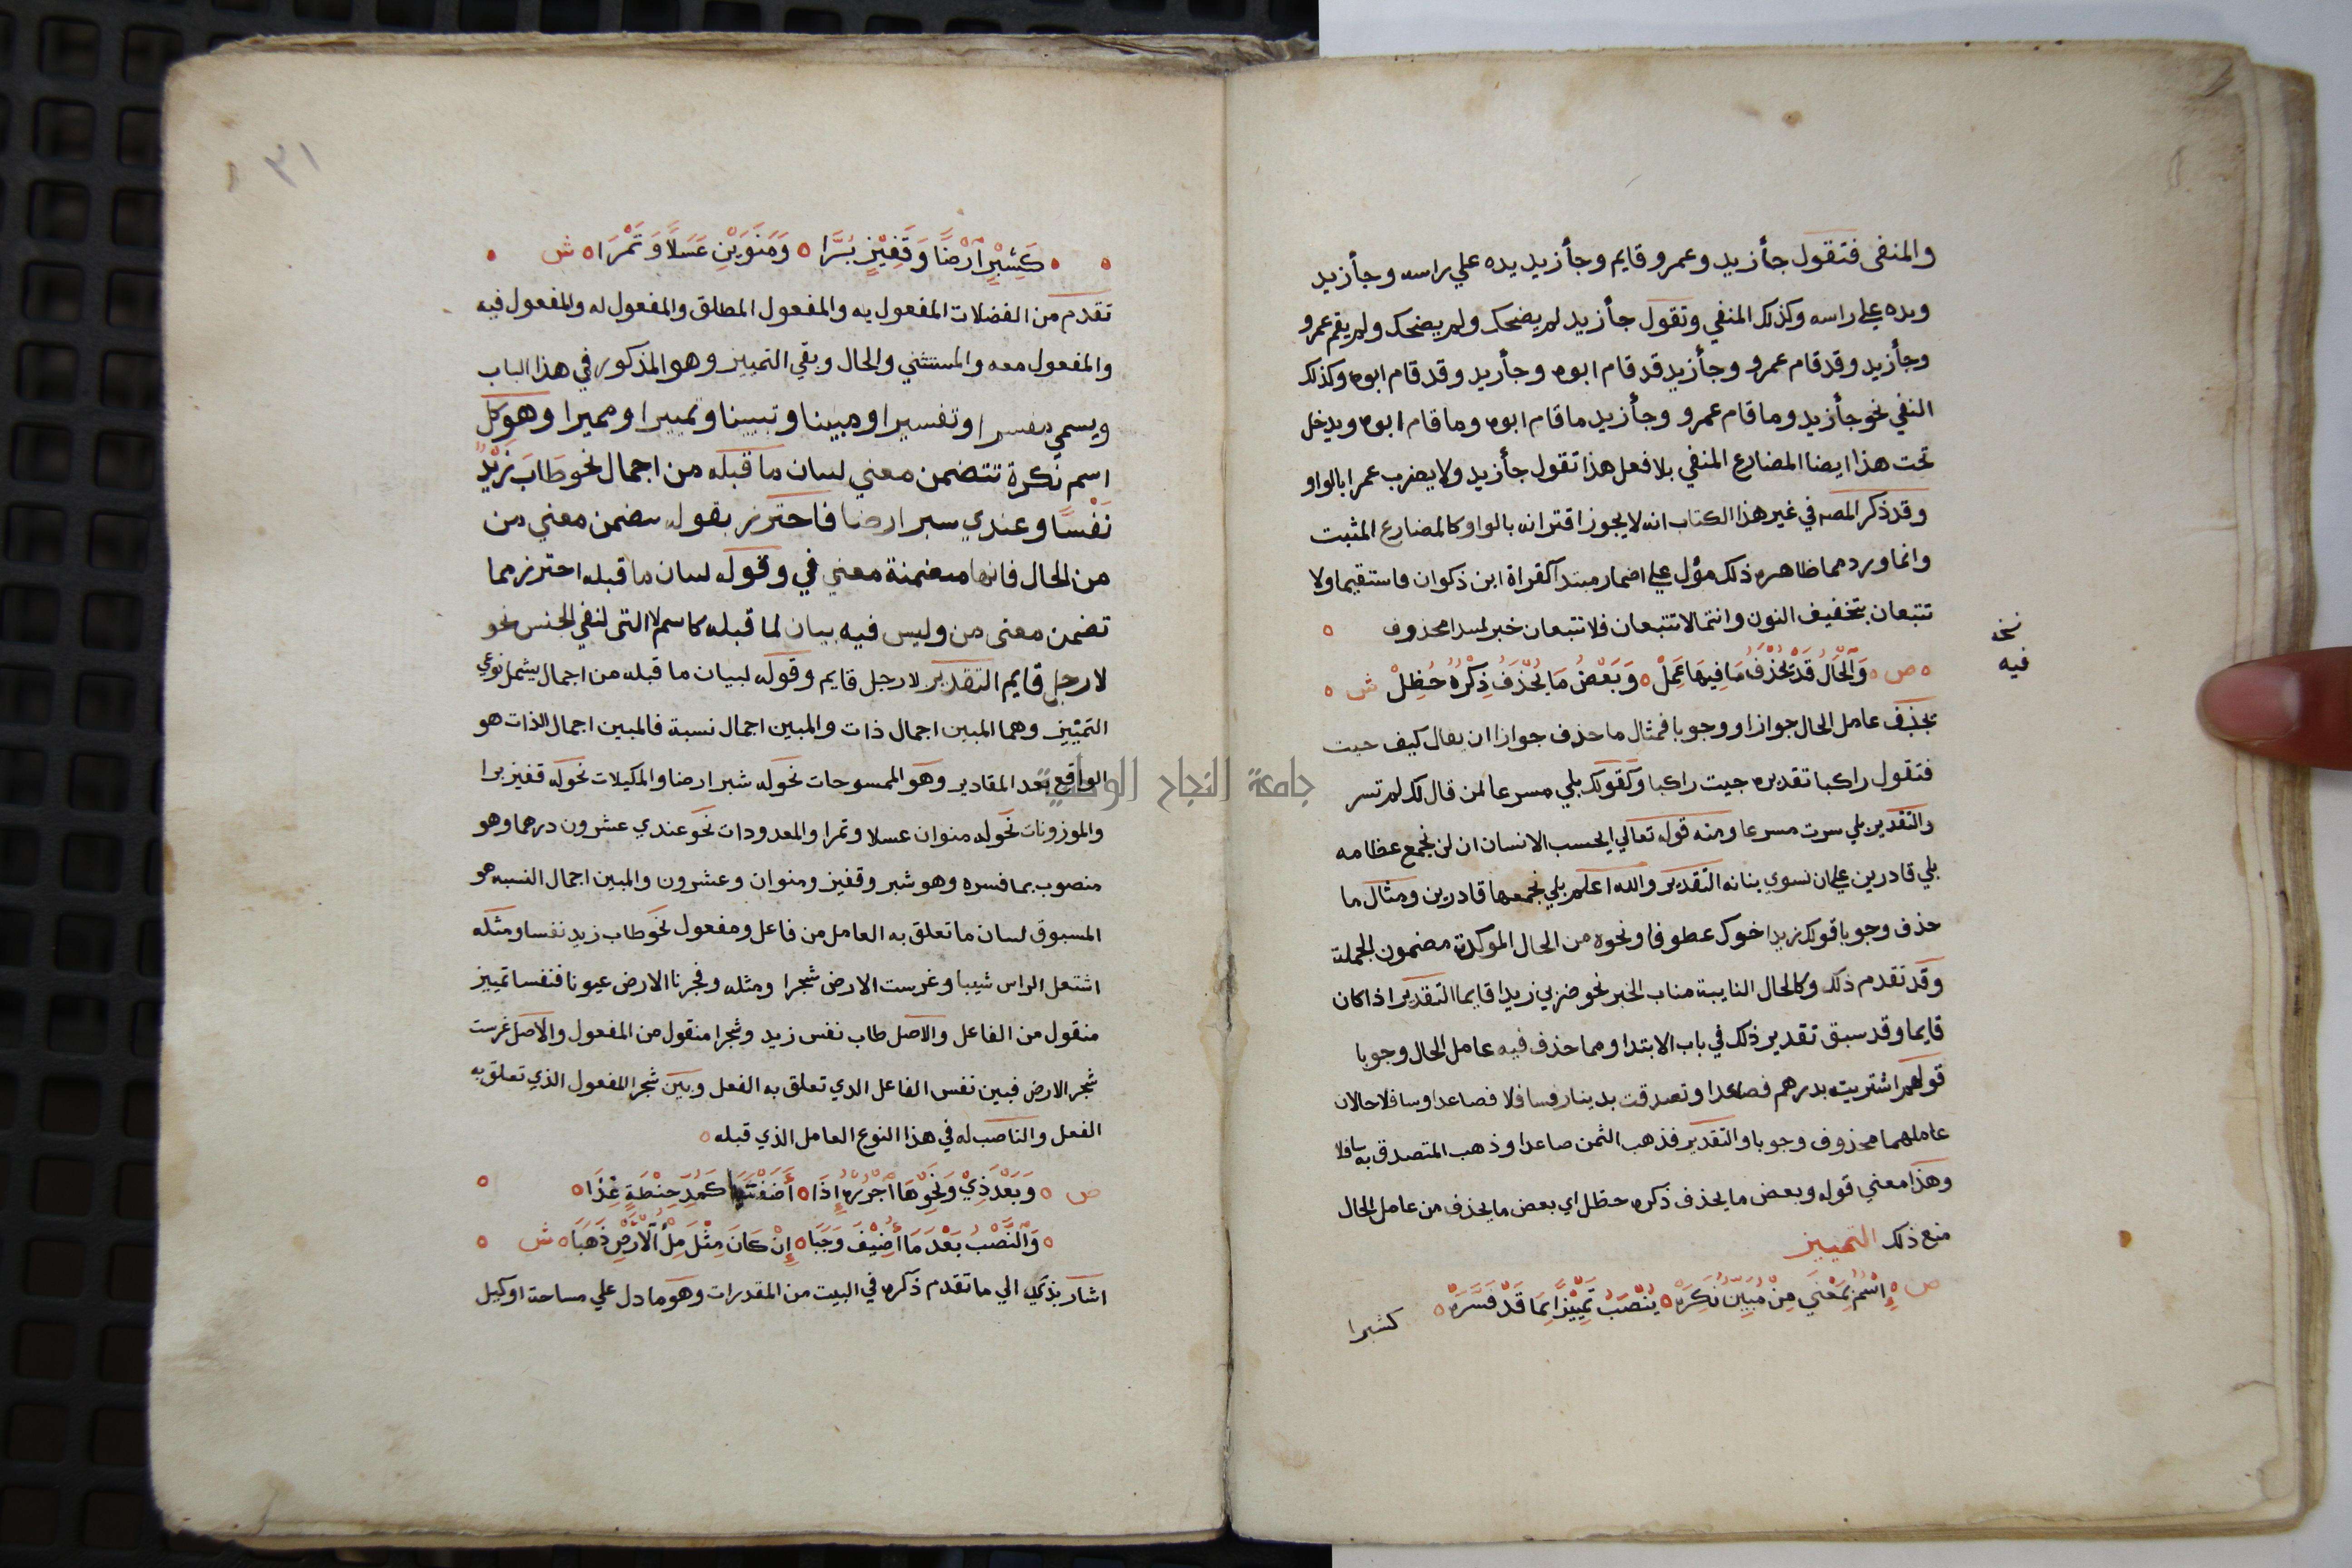 والمنفي فتقول جأ زيد وعمرو قايم وجأ زيد يده علي راسه وجأ زيد
ويده علي راسه وكذلك المنفي وتقول جأ زيد لم يضحك ولم يضحك ولم يقم عمرو
وجأ زيد وقد قام عمرو وجأ زيد قد قام ابوه وجأ زيد وقد قام ابوه وكذلك
النفي نحو جأ زيد وما قام عمرو وجأ زيد ما قام ابوه وما قام ابوه ويدخل
تحت هذا ايضا المضارع المنفي بلا فعل هذا تقول جأ زيد ولا يضرب عمرا بالواو
وقد ذكر المصه في غير هذا الكتاب انه لا يجوز اقترانه بالواو كالمضارع المثبت
وانما ورد مما ظاهره ذلك مؤل علي اضمار مبتدا كقراة ابن ذكوان فاستقيما ولا
تتبعان بتخفيف النون وانتما لا تتبعان فلا تتبعان خبر لمبتدا محذوف
نخـ
فيه
ص وَالْحَالُ قَدْ يُحْذَفُ مَا فِيهَا عَمِلْ وَبَعْضُ مَا يُحْذَفُ ذِكْرُهُ حُظِلْ ش
يحذف عامل الحال جوازا ووجوبا فمثال ما حذف جوازا ان يقال كيف جيت
فتقول راكبا تقديره جيت راكبا وكقولك بلي مسرعا لمن قال لك لم تسر
والتقدير بلي سرت مسرعا ومنه قوله تعالي ايحسب الانسان ان لن نجمع عظامه
بلي قادرين علي ان نسوي بنانه التقدير والله اعلم بلي نجمعها قادرين ومثال ما
حذف وجوبا قولك زيد اخوك عطوفا ونحوه من الحال الموكدة مضمون الجملة
وقد تقدم ذلك وكالحال النايبة مناب الخبر نحو ضربي زيدا قايما التقدير اذا كان
قايما وقد سبق تقدير ذلك في باب الابتدا ومما حذف فيه عامل الحال وجوبا
قولهم اشتريته بدرهم فصاعدا وتصدقت بدينار فسافلا فصاعدا وسافلا حالان
عاملهما محذوف وجوبا والتقدير فذهب الثمن صاعدا وذهب المتصدق به سافلا
وهذا معني قوله وبعض ما يحذف ذكره حظل اي بعض ما يحذف من عامل الحال
منع ذلك التمييز
ص اِسْمٌ بِمَعْنَي مِنْ مُبِيْنٌ نَكِرَهْ يُنْصَبُ تَمْيِيْزًا بِمَا قَدْ فَسَّرَهْ
كشبرا
٣١
كَشِبْرٍ اَرْضًا وَقَفِيْزٍ بُرَّا وَمَنَوَيْنِ عَسَلًا وَتَمْرَا ش
تقدم من الفضلات المفعول به والمفعول المطلق والمفعول له والمفعول فيه
والمفعول معه والمستثني والحال وبقي التمييز وهو المذكور في هذا الباب
ويسمي مفسرا وتفسيرا ومبينا وتبيينا وتمييزا ومميزا وهو كل
اسم نكرة تتضمن معني لبيان ما قبله من اجمال نحو طَابَ زَيْدٌ
نَفْسًا وعندي شبر ارضا فاحترز بقوله يتضمن معني من
من الحال فانها متضمنة معني في وقوله لبيان ما قبله احترز مما
تضمن معني من وليس فيه بيان لما قبله كاسم لا التي لنفي الجنس نحو
لا رجل قايم التقدير لا رجل قايم وقوله لبيان ما قبله من اجمال يشمل نوعي
التمييز وهما المبين اجمال ذات والمبين اجمال نسبة فالمبين اجمال الذات هو
الواقع بعد المقادير وهو الممسوحات نحو له شبر ارضا والمكيلات نحو له قفيز برا
والموزونات نحو له منوان عسلا وتمرا والمعدودات نحو عندي عشرون درهما وهو
منصوب بما فسره وهو شبر وقفيز ومنوان وعشرون والمبين اجمال النسبه هو
المسبوق لبيان ما تعلق به العامل من فاعل ومفعول نحو طاب زيد نفسا ومثله
اشتعل الراس شيبا وغرست الارض شجرا ومثله وفجرنا الارض عيونا فنفسا تمييز
منقول من الفاعل والاصل طاب نفس زيد وشجرا منقول من المفعول والاصل غرست
شجر الارض فبين نفس الفاعل الذي تعلق به الفعل وبين شجر المفعول الذي تعلق به
الفعل والناصب له في هذا النوع العامل الذي قبله
ص وَبَعْدَ ذِيْ وَنَحْوِهَا اجْرُرْهُ إِذَا أَضَفْتَهَا كَمُدِّ حِنْطَةٍ غِذَا
وَالنَّصْبُ بَعْدَ مَا أُضِيْفَ وَجَبَا إِنْ كَانَ مِثْلَ مِلْءُ الْأَرْضِ ذَهَبَا ش
اشار بذي الي ما تقدم ذكره في البيت من المقدرات وهو ما دل علي مساحة او كيل
جامعة النجاح الوطنية